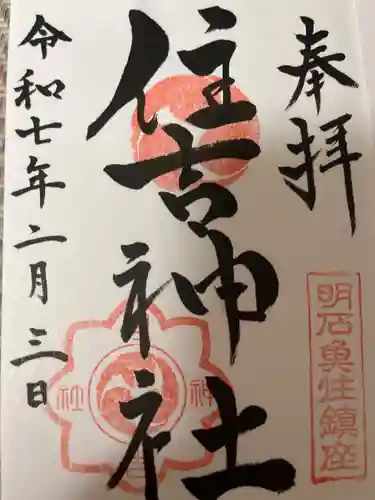 奉拝
明石魚住鎮座
住吉神社
神社
令和七年二月三日